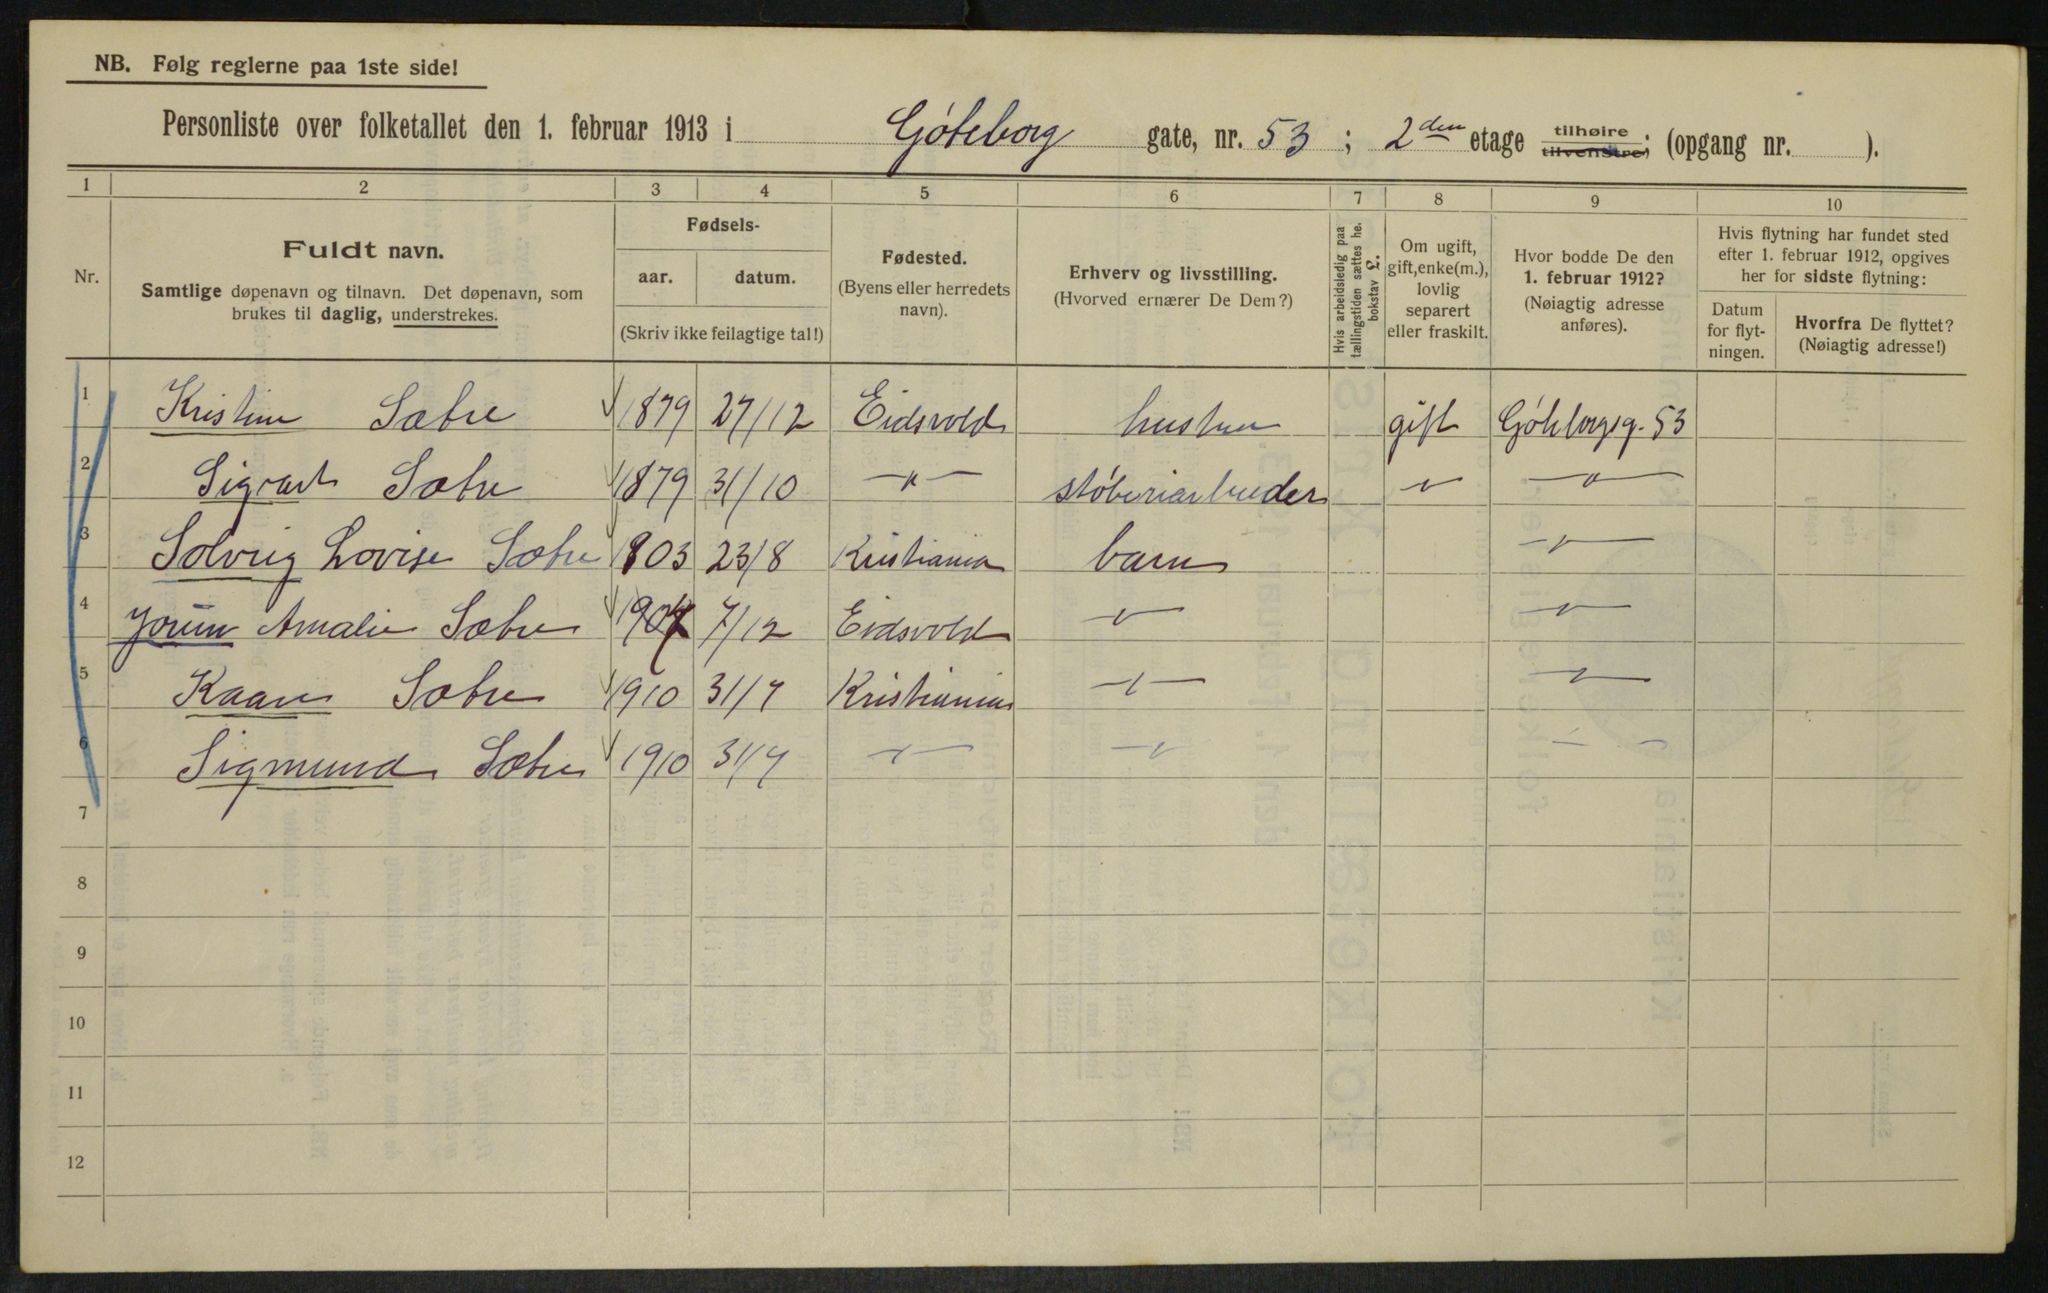 NB. Følg reglerne paa 1ste side!
Personliste over folketallet den 1. februar 1913 i Göteborg gate, nr. 53 ; 2den etage tilhøire tilvenstre; (opgang nr. ).
1 2 3 4 5 6 7 8 9 10
Nr.
Fuldt navn.
Samtlige døpenavn og tilnavn. Det døpenavn, som
brukes til daglig, understrekes.
Fødsels-
aar. datum.
(Skriv ikke feilagtige tal!)
Fødested.
(Byens eller herredets
navn).
Erhverv og livsstilling.
(Hvorved ernærer De Dem?)
Hvis arbeidsledig paa
tællingstiden sættes he.
bokstav L.
Om ugift,
gift, enke(m.),
lovlig
separert
eller fraskilt.
Hvor bodde De den
1. februar 1912?
(Nøiagtig adresse
anføres).
Hvis flytning har fundet sted
efter 1. februar 1912, opgives
her for sidste flytning:
Datum
for flyt-
ningen.
Hvorfra De flyttet?
(Nøiagtig adresse!)
1 Kristine Sætre 1879 27/12 Eidsvold hustru gift Göteborgsg. 53
2 Sigvart Sætre 1879 31/10 -"- støberiarbeider -"- -"-
3 Solveig Lovise Sætre 1903 23/8 Kristiania barn -"-
4 Jorun Amalie Sætre 7/12 Eidsvold -"- -"-
5 Kaare Sætre 1910 31/7 Kristiania -"- -"-
6 Sigmund Sætre 1910 31/7 -"- -"- -"-
7
8
9
10
11
12